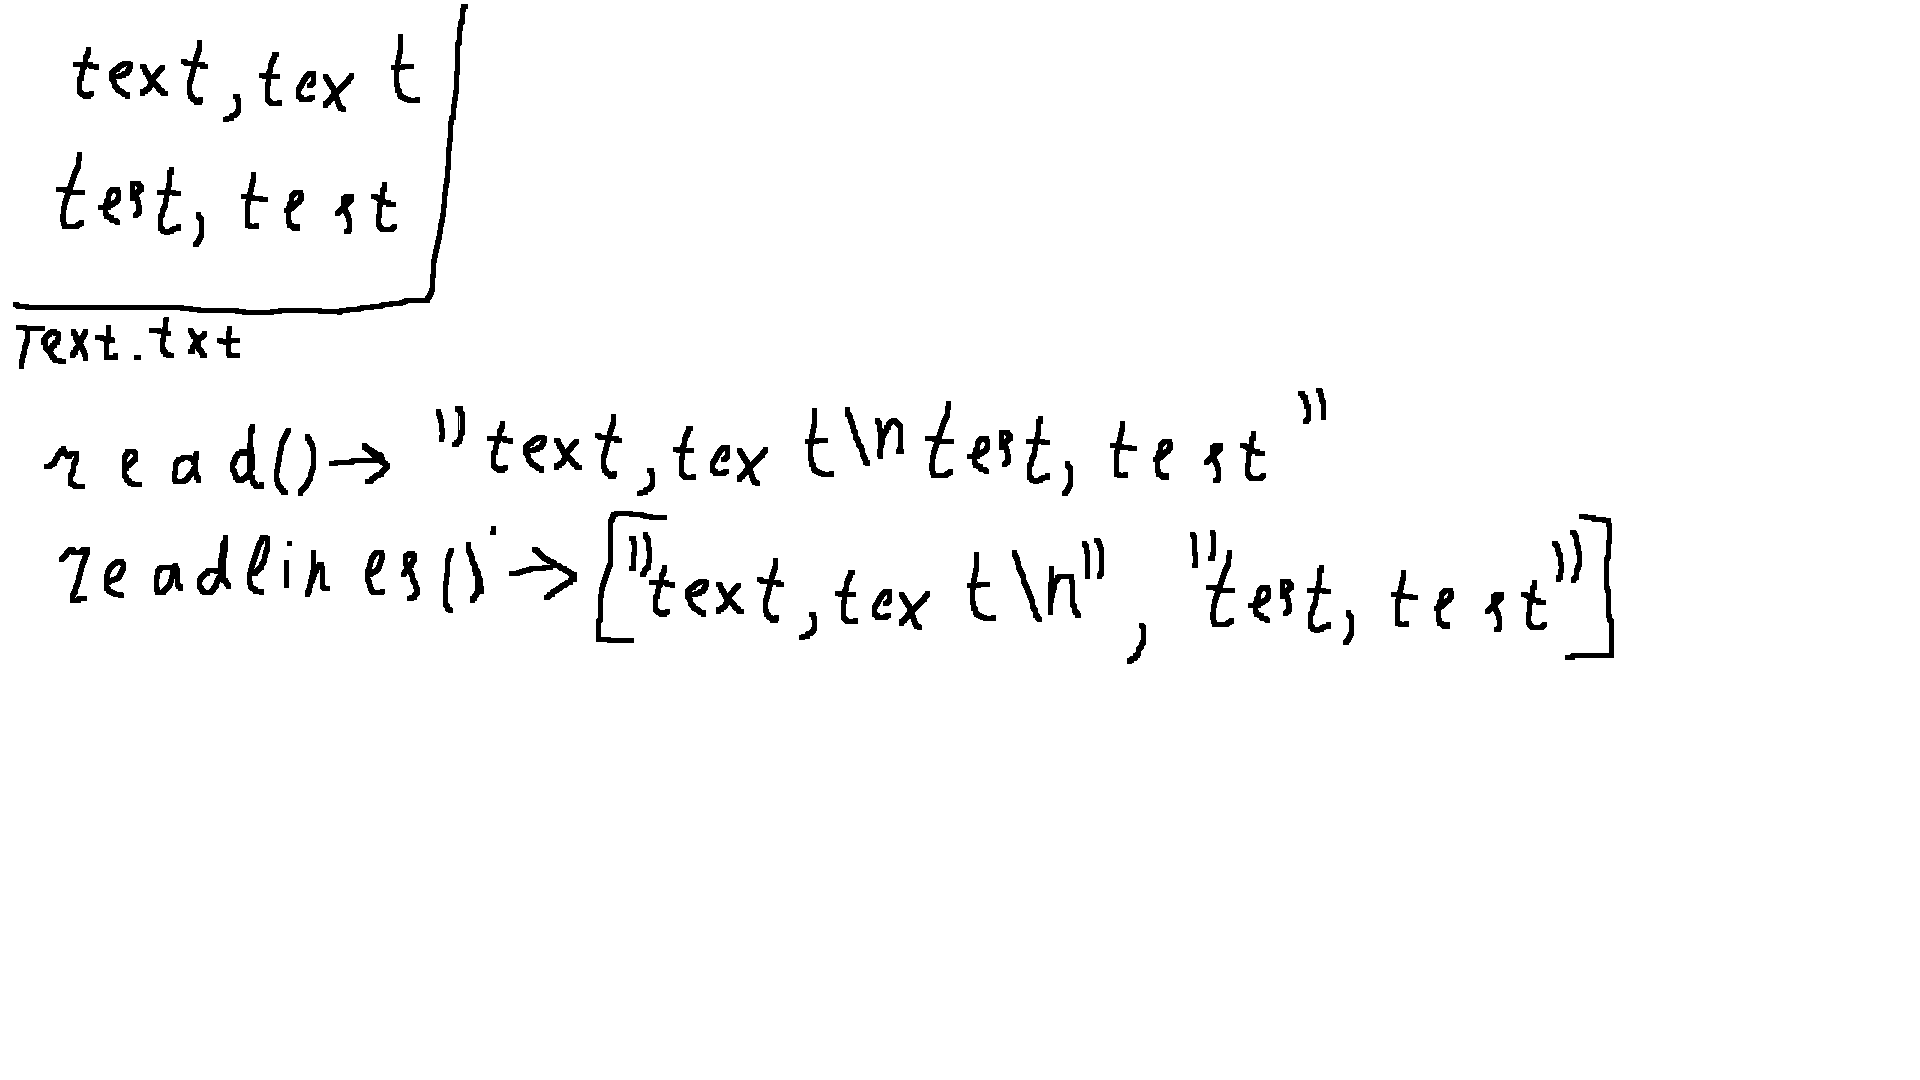 text, text
test, test
Text.txt
read() → "text, text\ntest, test"
readlines() → ["text, text\n", "test, test"]